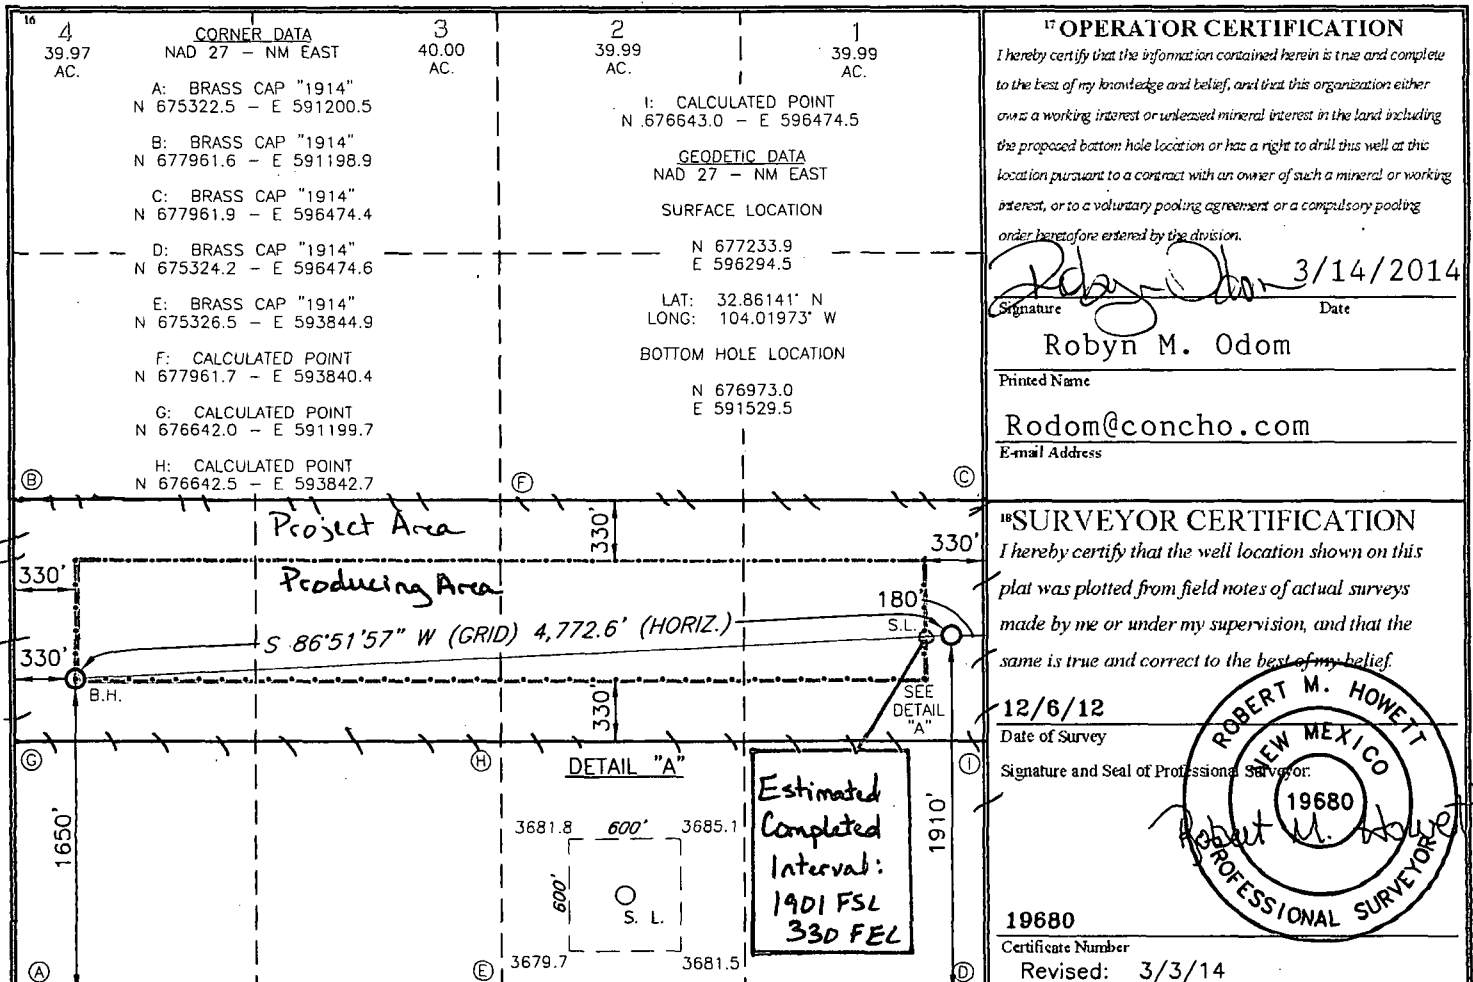 16
4
39.97
AC.
CORNER DATA
NAD 27 - NM EAST
3
40.00
AC.
2
39.99
AC.
1
39.99
AC.
A: BRASS CAP "1914"
N 675322.5 - E 591200.5
B: BRASS CAP "1914"
N 677961.6 - E 591198.9
C: BRASS CAP "1914"
N 677961.9 - E 596474.4
D: BRASS CAP "1914"
N 675324.2 - E 596474.6
E: BRASS CAP "1914"
N 675326.5 - E 593844.9
F: CALCULATED POINT
N 677961.7 - E 593840.4
G: CALCULATED POINT
N 676642.0 - E 591199.7
H: CALCULATED POINT
N 676642.5 - E 593842.7
I: CALCULATED POINT
N 676643.0 - E 596474.5
GEODETIC DATA
NAD 27 - NM EAST
SURFACE LOCATION
N 677233.9
E 596294.5
LAT: 32.86141° N
LONG: 104.01973° W
BOTTOM HOLE LOCATION
N 676973.0
E 591529.5
B
F
C
Project Area
330'
330'
330'
Producing Area
180'
S.L.
S 86°51'57" W (GRID) 4,772.6' (HORIZ.)
330'
B.H.
330'
SEE
DETAIL
"A"
G
H
I
DETAIL "A"
1650'
3681.8 600' 3685.1
600'
S. L.
3679.7 3681.5
Estimated
Completed
Interval:
1901 FSL
330 FEL
1910'
A
E
D
17 OPERATOR CERTIFICATION
I hereby certify that the information contained herein is true and complete
to the best of my knowledge and belief, and that this organization either
owns a working interest or unleased mineral interest in the land including
the proposed bottom hole location or has a right to drill this well at this
location pursuant to a contract with an owner of such a mineral or working
interest, or to a voluntary pooling agreement or a compulsory pooling
order heretofore entered by the division.
Robyn Odom 3/14/2014
Signature Date
Robyn M. Odom
Printed Name
Rodom@concho.com
E-mail Address
18 SURVEYOR CERTIFICATION
I hereby certify that the well location shown on this
plat was plotted from field notes of actual surveys
made by me or under my supervision, and that the
same is true and correct to the best of my belief.
12/6/12
Date of Survey
Signature and Seal of Professional Surveyor:
ROBERT M. HOWETT
NEW MEXICO
19680
PROFESSIONAL SURVEYOR
Robert M. Howett
19680
Certificate Number
Revised: 3/3/14